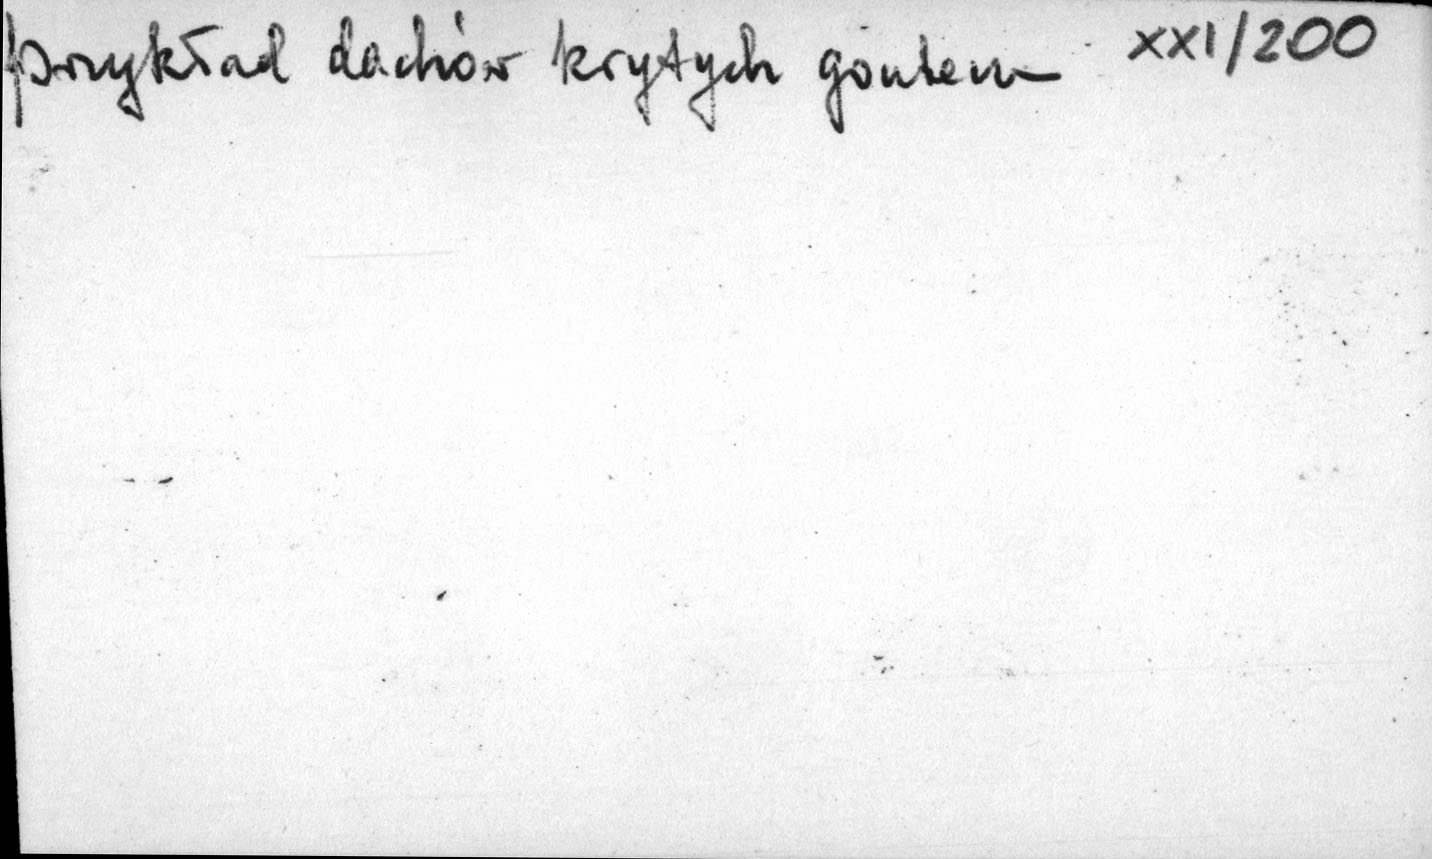 przykład dachów krytych gontem XXI/200